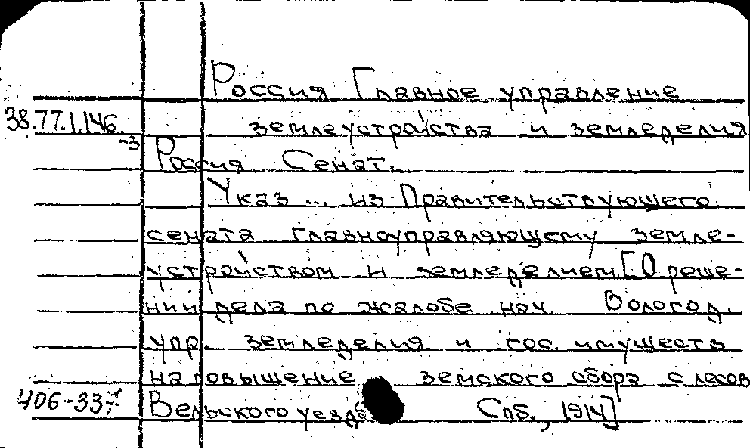 Россия Главное управление
38.77.1.146 землеустройства и земледелия
-3 Россия Сенат.
Указ ... из Правительствующего
сената главноуправляющему земле-
устройством и земледелием [О реше-
нии дела по жалобе нач. Вологод.
упр. земледелия и гос. имуществ
на повышение земского сбора с лесов
406-337 Вельского уезда Спб., 1914]